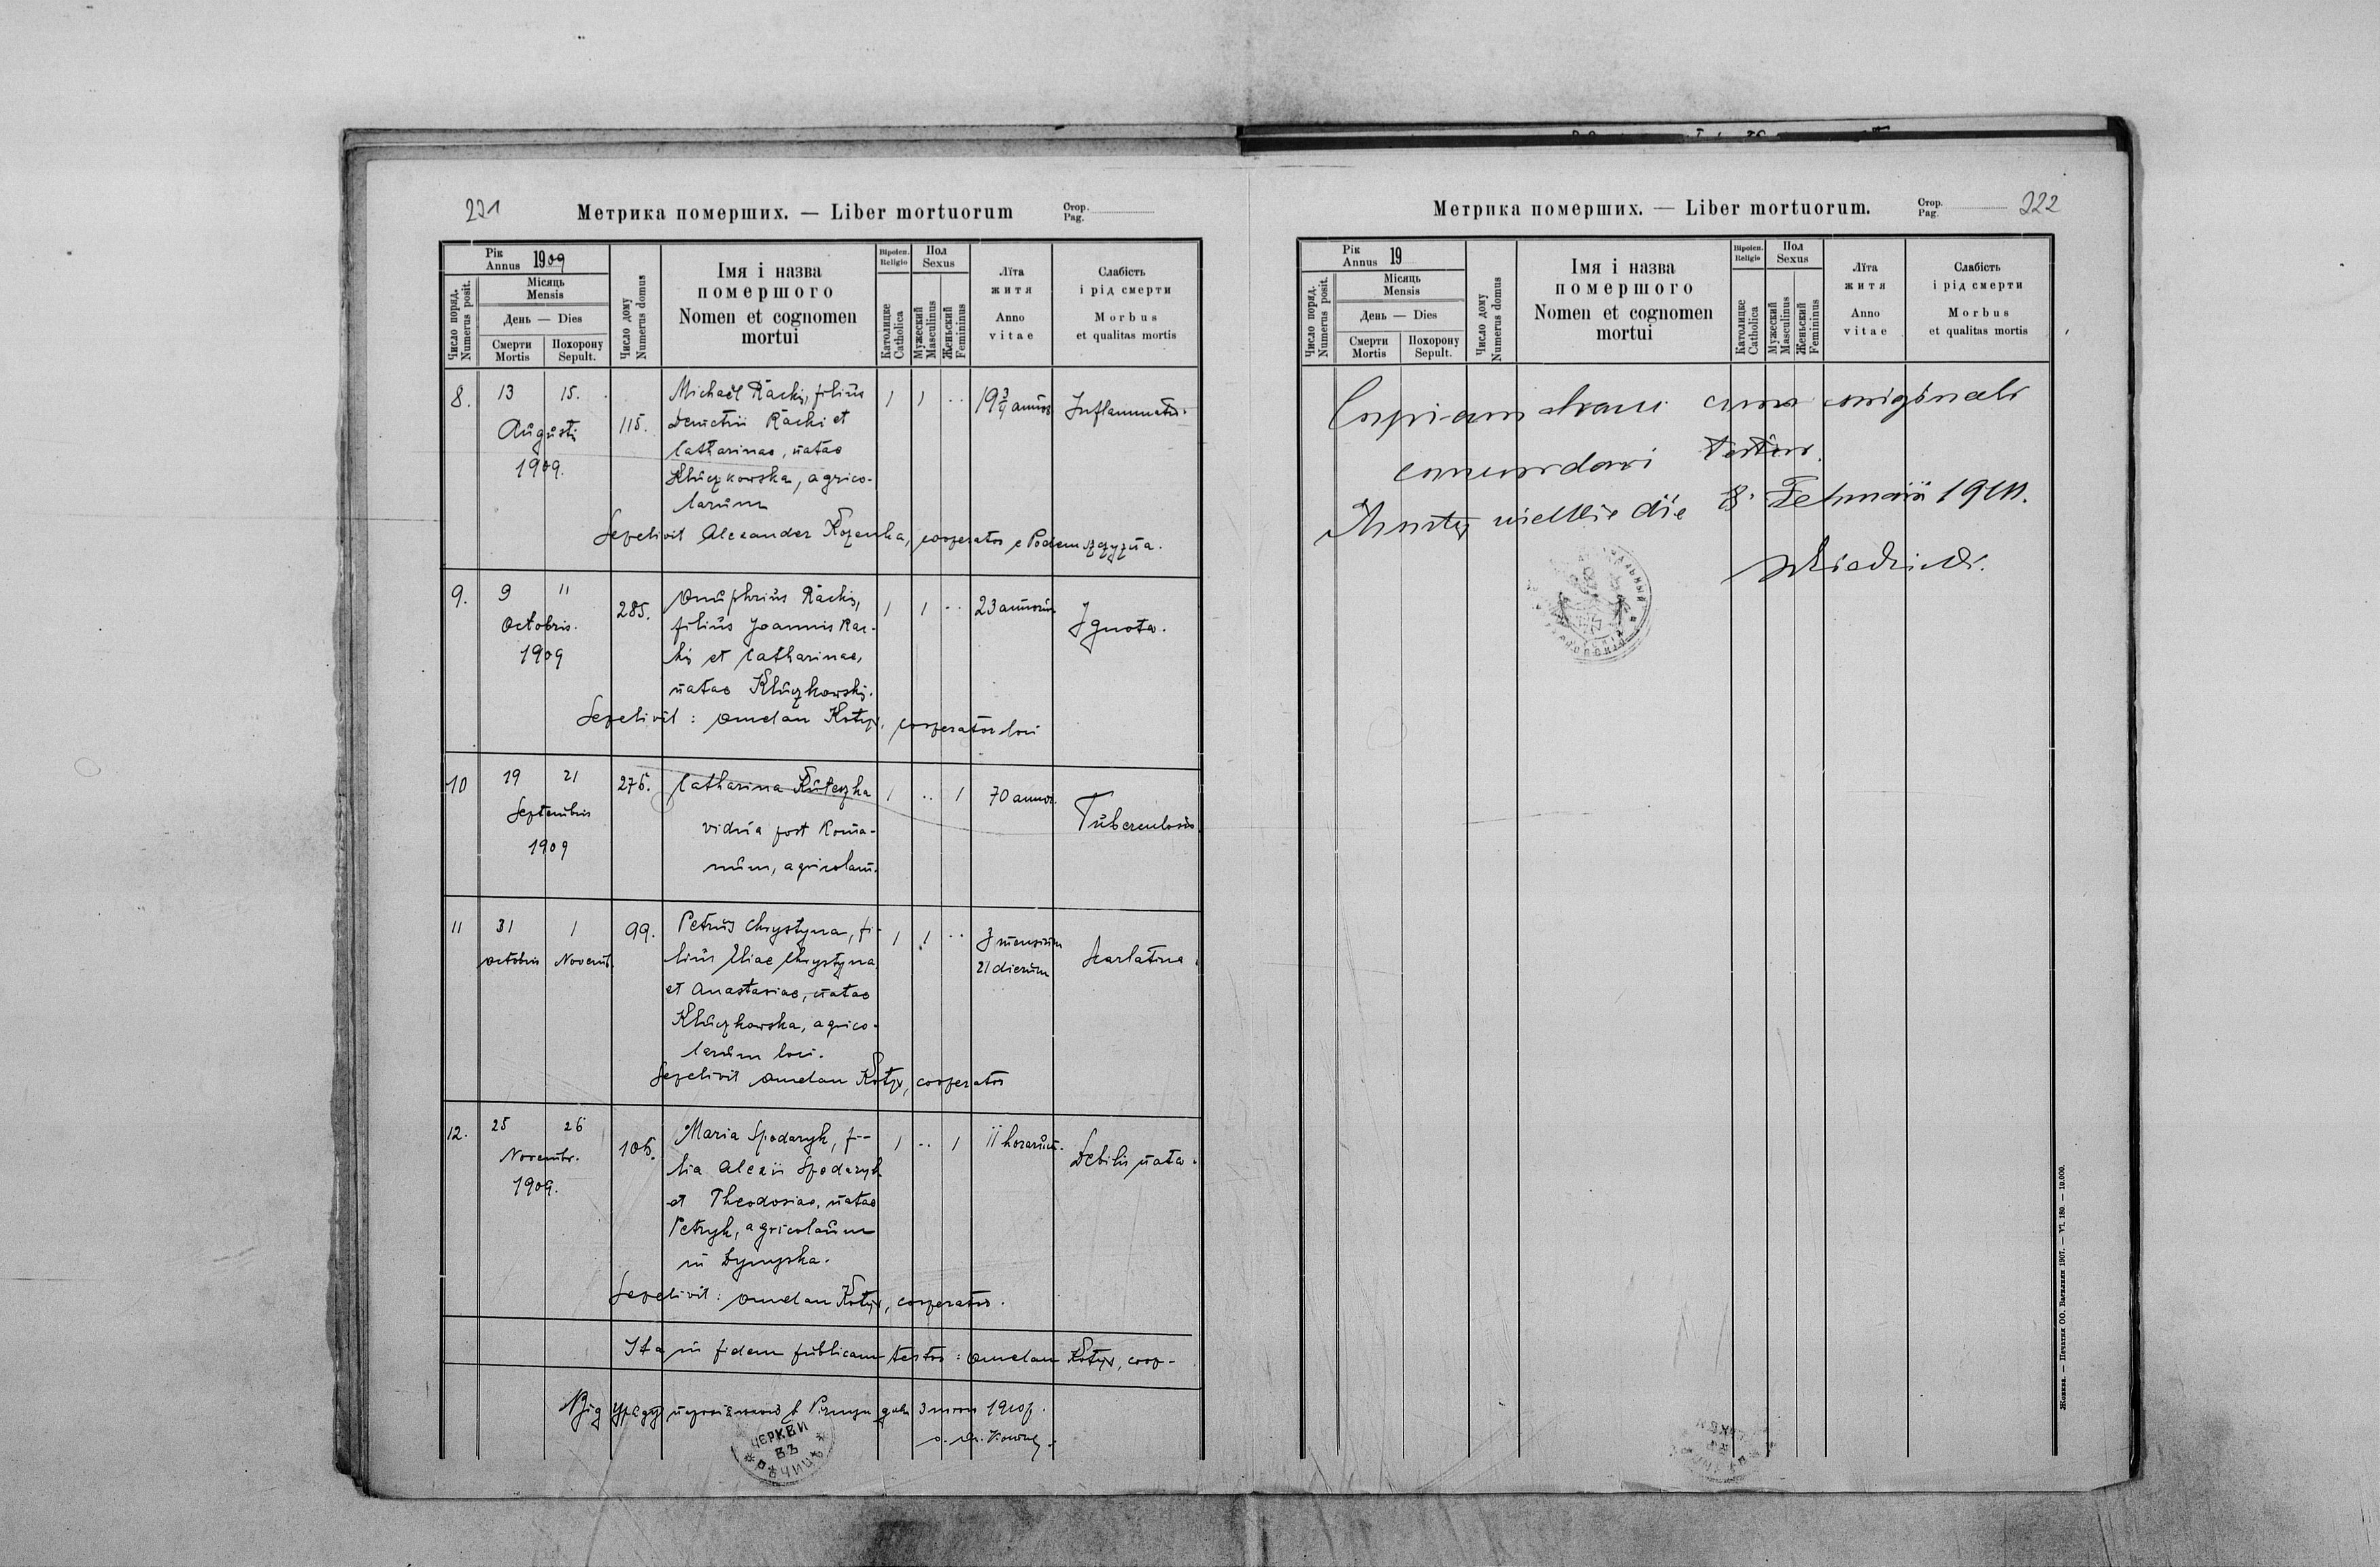 221
Метрика померших. — Liber mortuorum
Стор.
Pag.
Рік
Annus 1909
Число поряд.
Numerus posit.
Місяць
Mensis
День — Dies
Смерти
Mortis
Похорону
Sepult.
Число дому
Numerus domus
Імя і назва
помершого
Nomen et cognomen
mortui
Віроісп.
Religio
Католицке
Catholica
Пол
Sexus
Мужеский
Masculinus
Женьский
Femininus
Лїта
житя
Anno
vitae
Слабість
і рід смерти
Morbus
et qualitas mortis
8. 13 15. Michaël Racki, filius 1 1 .. 19 3/4 annos Inflammatio.
Augusti 115. Demetrii Racki et
Catharinae, natae
1909. Kluczkowska, agrico-
larum
Sepelivit Alexander Kozenka, cooperator e Podemszczyzna.
9. 9 11 285. Onuphrius Rackij, 1 1 .. 23 annorum Ignota.
Octobris. filius Joannis Rac-
1909 kij et Catharinae,
natae Kluczkowskij.
Sepelivit: Omelan Kotyx, cooperator loci
10 19 21 276. Catharina Kuteczka 1 .. 1 70 annor. Tuberculosis
Septembris vidua post Roma-
1909 num, agricolam.
11 31 1 99. Petrus Chrystyna, fi- 1 1 .. 3 mensium Scarlatina.
octobris Novemb. lius Eliae Chrystyna 21 dierum
et Anastasiae, natae
Kluczkowska, agrico-
larum loci.
Sepelivit Omelan Kotyx, cooperator
12. 25 26 106. Maria Spodaryk, f-- 1 .. 1 11 horarum. Debilis nata.
Novembr. lia Alexii Spodaryk
1909. et Theodosiae, natae
Petryk, agricolarum
in Dymyska.
Sepelivit: Omelan Kotyx, cooperator.
Ita in fidem publicam testor: Omelan Kotyx, coop-
Від уряду 1910 р.
ЦЕРКВИ
ВЪ
222
Метрика померших. — Liber mortuorum.
Стор.
Pag.
Рік
Annus 19
Число поряд.
Numerus posit.
Місяць
Mensis
День — Dies
Смерти
Mortis
Похорону
Sepult.
Число дому
Numerus domus
Імя і назва
помершого
Nomen et cognomen
mortui
Віроісп.
Religio
Католицке
Catholica
Пол
Sexus
Мужеский
Masculinus
Женьский
Femininus
Лїта
житя
Anno
vitae
Слабість
і рід смерти
Morbus
et qualitas mortis
Copiam hanc cum originali
concordari testor.
die 18. Februarii 1910.
Жовква. — Печатня ОО. Василиян 1907. — VI. 180. — 10.000.